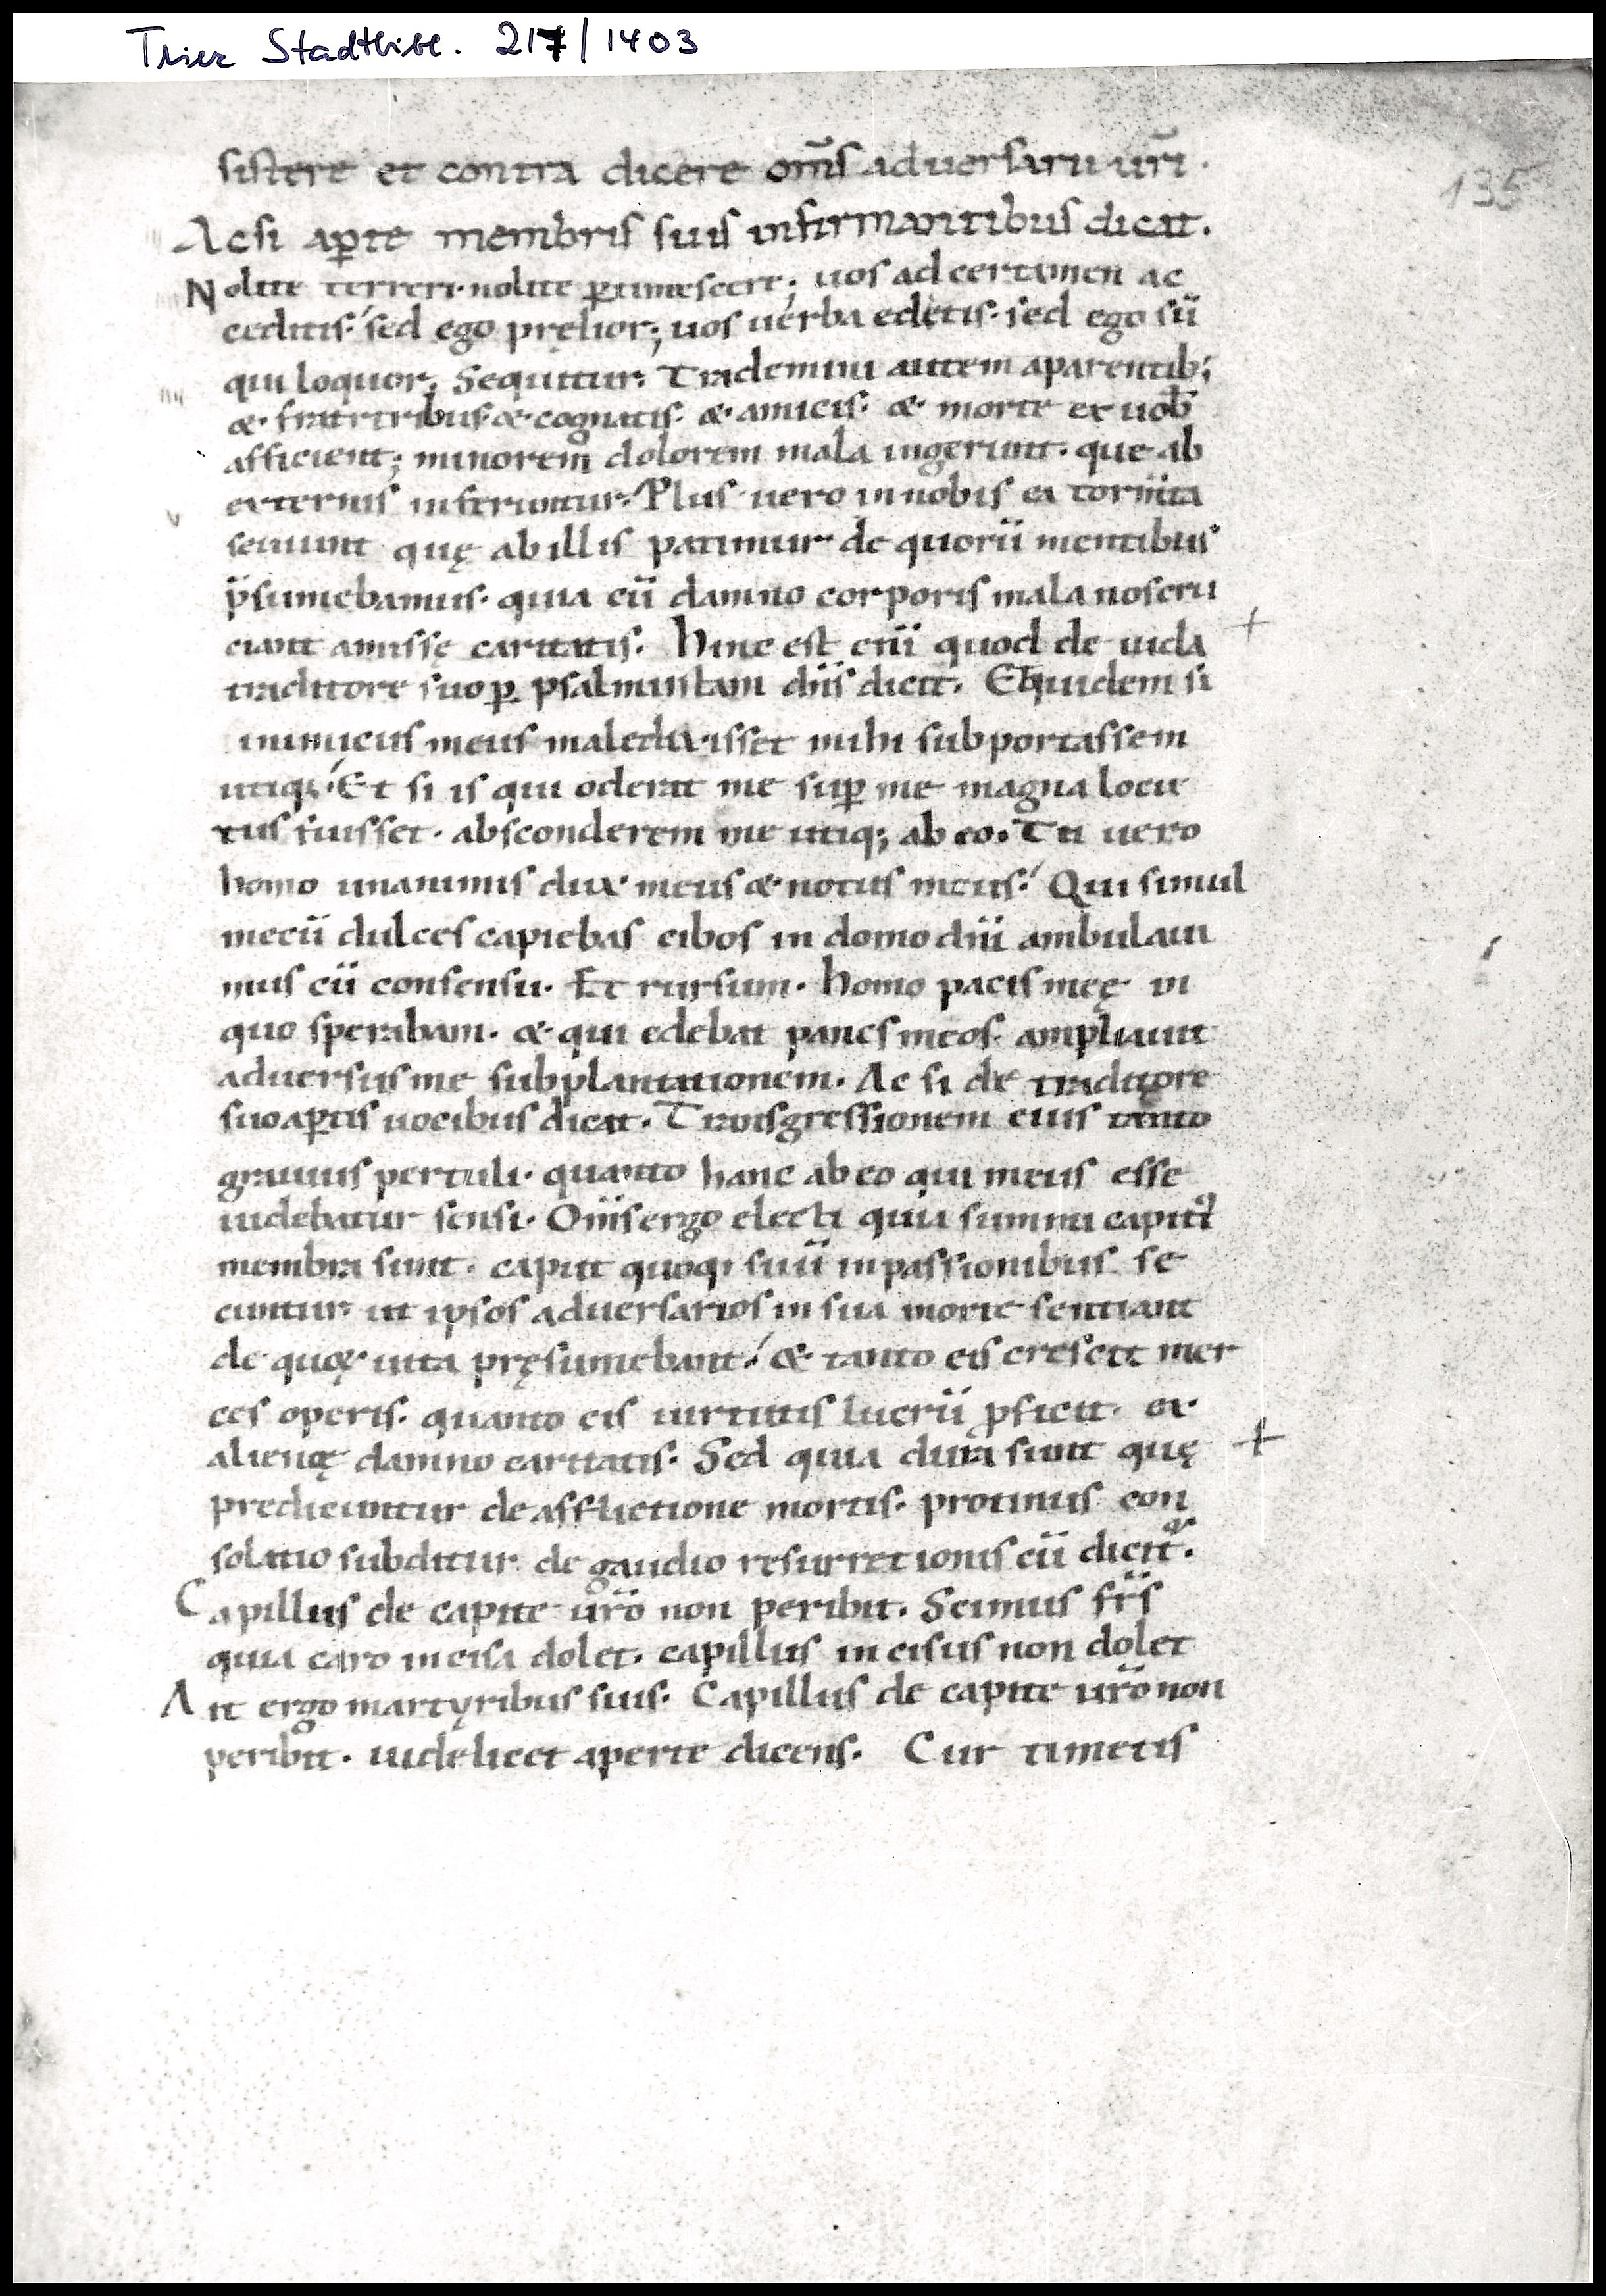 Trier Stadtbibl. 217/1403
135
sistere et contra dicere om̄s aduersarii ur̄i.
Acsi aꝑte membris suis infirmantibus dicat.
Nolite terreri. nolite ꝑtimescere; uos ad certamen ac
ceditis. sed ego pręlior; uos uerba edetis. sed ego sū
qui loquor; Sequitur. Trademini autem a parentib;
& fratribus. & cognatis. & amicis. & morte ex uob̄
afficient; minorem dolorem mala ingerunt. que ab
externis inferuntur. Plus uero in nobis ea torm̄ta
seuiunt quę ab illis patimur de quorū mentibus
p̄sumebamus. quia cū damno corporis mala nos cru
ciant amissę caritatis. Hinc est eni̅ quod de iuda
traditore suo ꝑ psalmistam dn̄s dicit. Et quidem si
inimicus meus maledixisset mihi subportassem
utiq; Et si is qui oderat me suꝑ me magna locu
tus fuisset. absconderem me utiq; ab eo. Tu uero
homo unanimis dux meus & notus meus. Qui simul
mecū dulces capiebas cibos in domo dn̄i ambulaui
mus cū consensu. Et rursum. Homo pacis meę in
quo sperabam. & qui edebat panes meos. ampliauit
aduersus me subplantationem. Ac si de traditore
suo aꝑtis uocibus dicat. Transgressionem eius tanto
grauius pertuli. quanto hanc ab eo qui meus esse
uidebatur sensi. Om̄s ergo electi quia summi capitis
membra sunt. caput quoq; suū in passionibus se
cuntur. ut ipsos aduersarios in sua morte sentiant
de quoꝝ uita pręsumebant. & tanto eis crescit mer
ces operis. quanto eis uirtutis lucrū ꝓficit. ex
alienę damno caritatis. Sed quia dura sunt quę
predicuntur de afflictione mortis. protinus con
solatio subditur de gaudio resurrectionis cū dicit̉.
Capillus de capite ur̄o non peribit. Scimus fr̄s
quia caro incisa dolet. capillus incisus non dolet
Ait ergo martyribus suis. Capillus de capite ur̄o non
peribit. uidelicet aperte dicens. Cur timetis